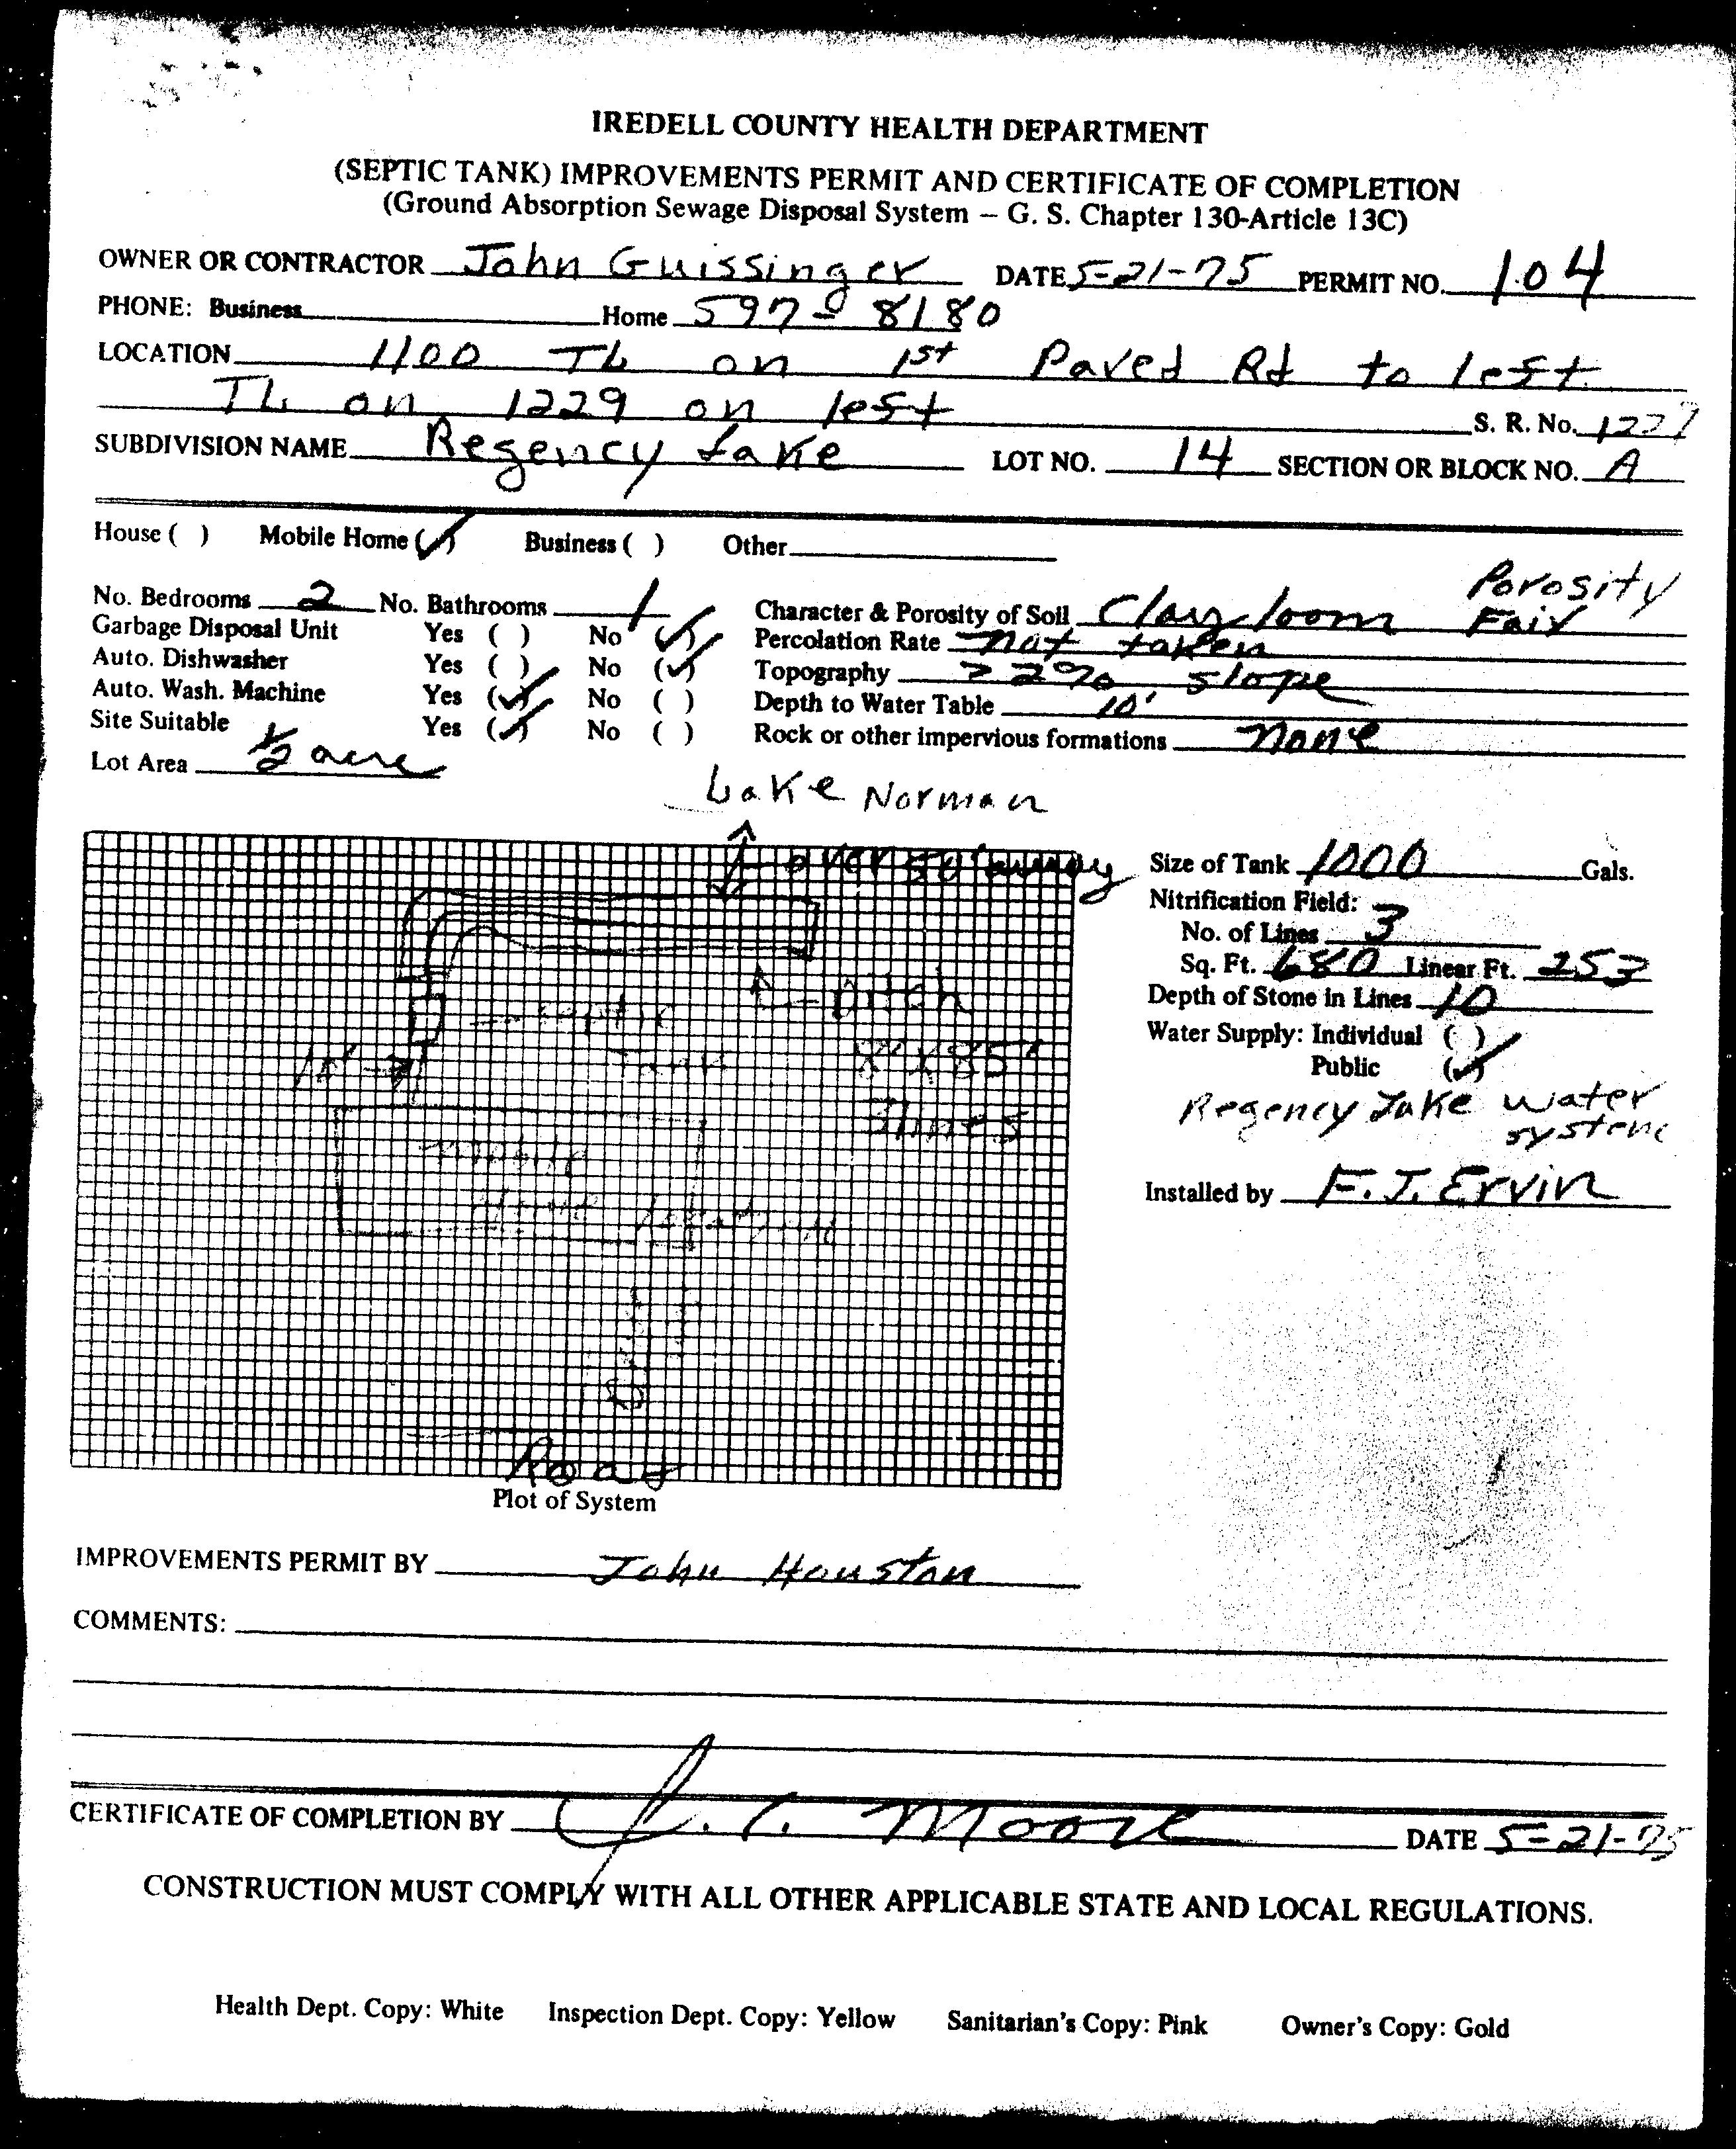 IREDELL COUNTY HEALTH DEPARTMENT
(SEPTIC TANK) IMPROVEMENTS PERMIT AND CERTIFICATE OF COMPLETION
(Ground Absorption Sewage Disposal System – G. S. Chapter 130-Article 13C)
OWNER OR CONTRACTOR John Guissinger DATE 5-21-75 PERMIT NO. 104
PHONE: Business Home 597-8180
LOCATION 1100 TL on 1st Paved Rd to left
TL on 1229 on left S. R. No.
SUBDIVISION NAME Regency Lake LOT NO. 14 SECTION OR BLOCK NO. A
House ( ) Mobile Home (✓) Business ( ) Other
Porosity
No. Bedrooms 2 No. Bathrooms 1 Character & Porosity of Soil Clay loom Fair
Garbage Disposal Unit Yes ( ) No (✓) Percolation Rate not taken
Auto. Dishwasher Yes ( ) No (✓) Topography > 2% slope
Auto. Wash. Machine Yes (✓) No ( ) Depth to Water Table 10'
Site Suitable Yes (✓) No ( ) Rock or other impervious formations none
Lot Area 1/2 acre
Lake Norman
over 50' away
Size of Tank 1000 Gals.
Nitrification Field:
No. of Lines 3
Sq. Ft. 680 Linear Ft. 253
Depth of Stone in Lines 10
Water Supply: Individual ( )
Public (✓)
Regency Lake water
system
Installed by F.J. Ervin
septic
Tank
8' x 85'
3 lines
mobile
Home
Road
Plot of System
IMPROVEMENTS PERMIT BY John Houston
COMMENTS:
CERTIFICATE OF COMPLETION BY Moore DATE 5-21-75
CONSTRUCTION MUST COMPLY WITH ALL OTHER APPLICABLE STATE AND LOCAL REGULATIONS.
Health Dept. Copy: White Inspection Dept. Copy: Yellow Sanitarian's Copy: Pink Owner's Copy: Gold